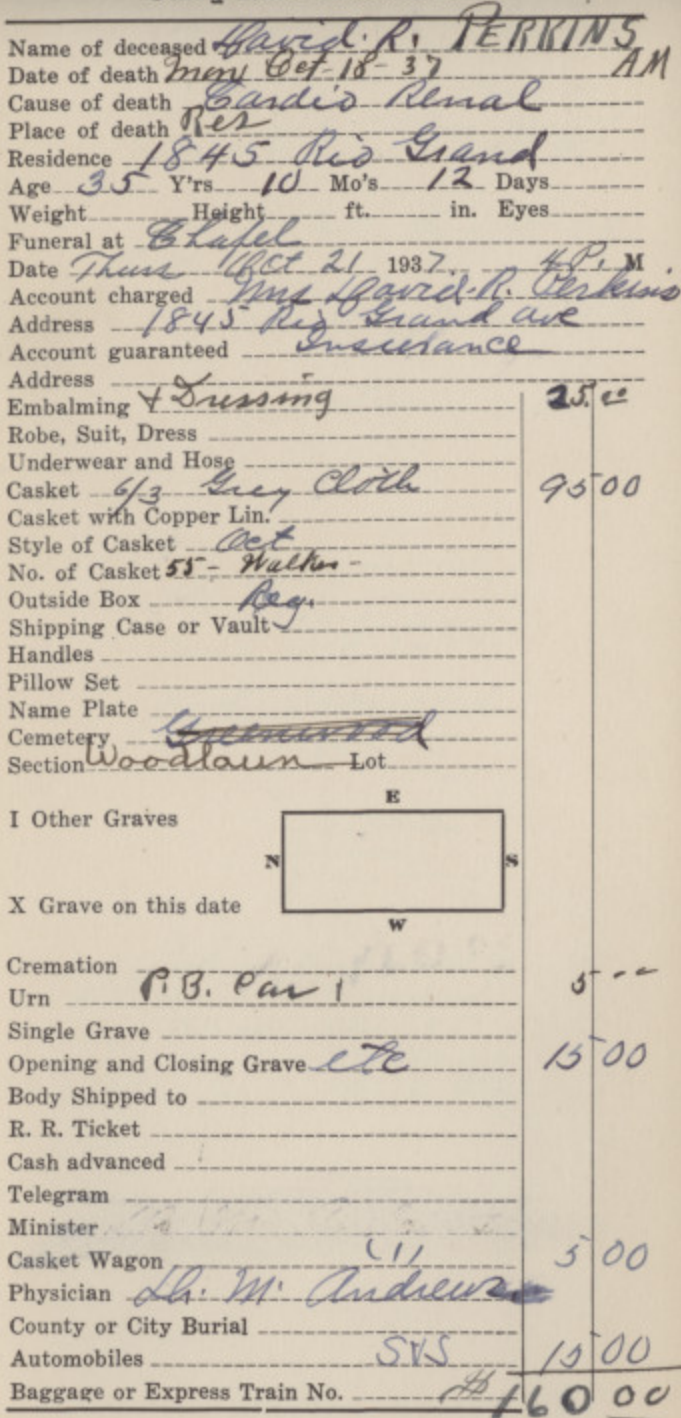 Name of deceased David. R. PERKINS
Date of death Mon Oct-18-37 AM
Cause of death Cardio Renal
Place of death Res
Residence 1845 Rio Grand
Age 35 Y'rs 10 Mo's 12 Days
Weight Height ft. in. Eyes
Funeral at Chapel
Date Thurs Oct 21 1937. 4 P. M
Account charged Mrs David. R. Perkins
Address 1845 Rio Grand ave
Account guaranteed Insurance
Address
Embalming + Dressing 25.00
Robe, Suit, Dress
Underwear and Hose
Casket 6/3 Grey Cloth 95 00
Casket with Copper Lin.
Style of Casket Oct
No. of Casket 55- Walker-
Outside Box Reg.
Shipping Case or Vault
Handles
Pillow Set
Name Plate
Cemetery Greenwood
Section Woodlawn Lot
E
I Other Graves
N S
X Grave on this date
W
Cremation
Urn P.B. Car 1 5 --
Single Grave
Opening and Closing Grave etc 15 00
Body Shipped to
R. R. Ticket
Cash advanced
Telegram
Minister
Casket Wagon (1) 5 00
Physician Dr. M. Andrews
County or City Burial
Automobiles SVS 15 00
Baggage or Express Train No. 160 00